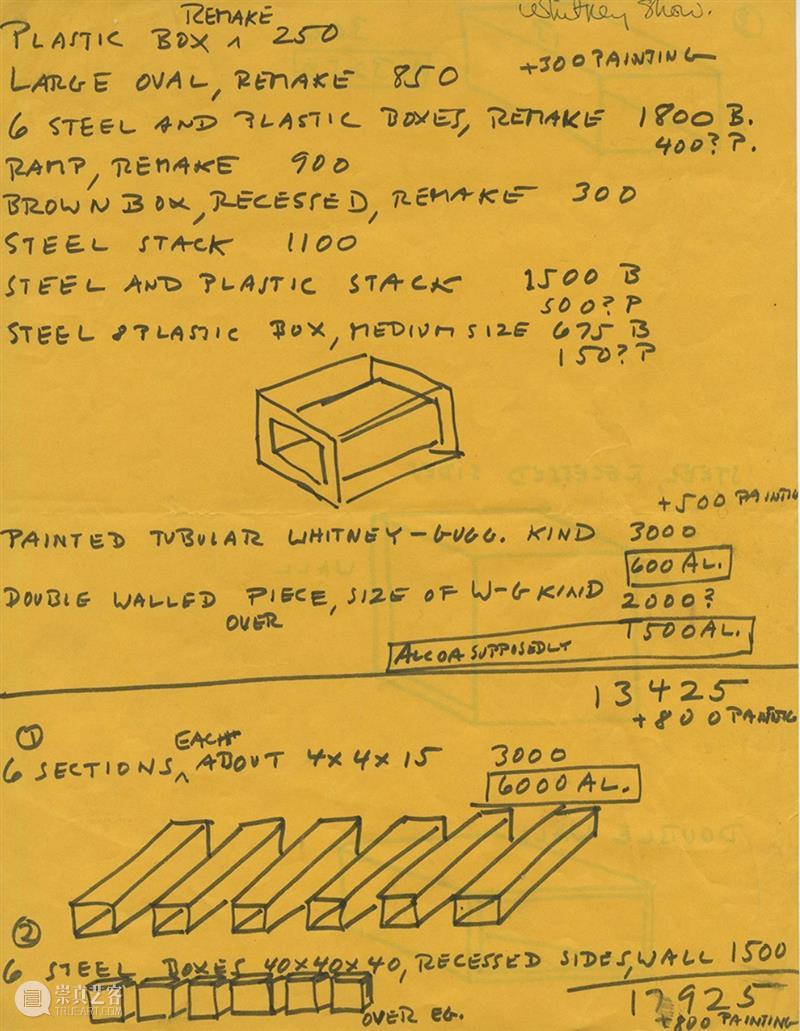 Whitney Show.
REMAKE
PLASTIC BOX ^ 250
+300 PAINTING
LARGE OVAL, REMAKE 850
6 STEEL AND PLASTIC BOXES, REMAKE 1800 B.
400? P.
RAMP, REMAKE 900
BROWN BOX, RECESSED, REMAKE 300
STEEL STACK 1100
STEEL AND PLASTIC STACK 1500 B
500? P
STEEL & PLASTIC BOX, MEDIUM SIZE 675 B
150? P
+500 PAINTING
PAINTED TUBULAR WHITNEY-GUGG. KIND 3000
600 AL.
DOUBLE WALLED PIECE, SIZE OF W-G KIND 2000?
OVER
ALCOA SUPPOSEDLY 1500 AL.
13425
+800 PAINTING
①
EACH
6 SECTIONS, ^ ABOUT 4X4X15 3000
6000 AL.
②
6 STEEL BOXES 40X40X40, RECESSED SIDES, WALL 1500
OVER EG.
17925
+800 PAINTING
崇真艺客
TRUEART.COM